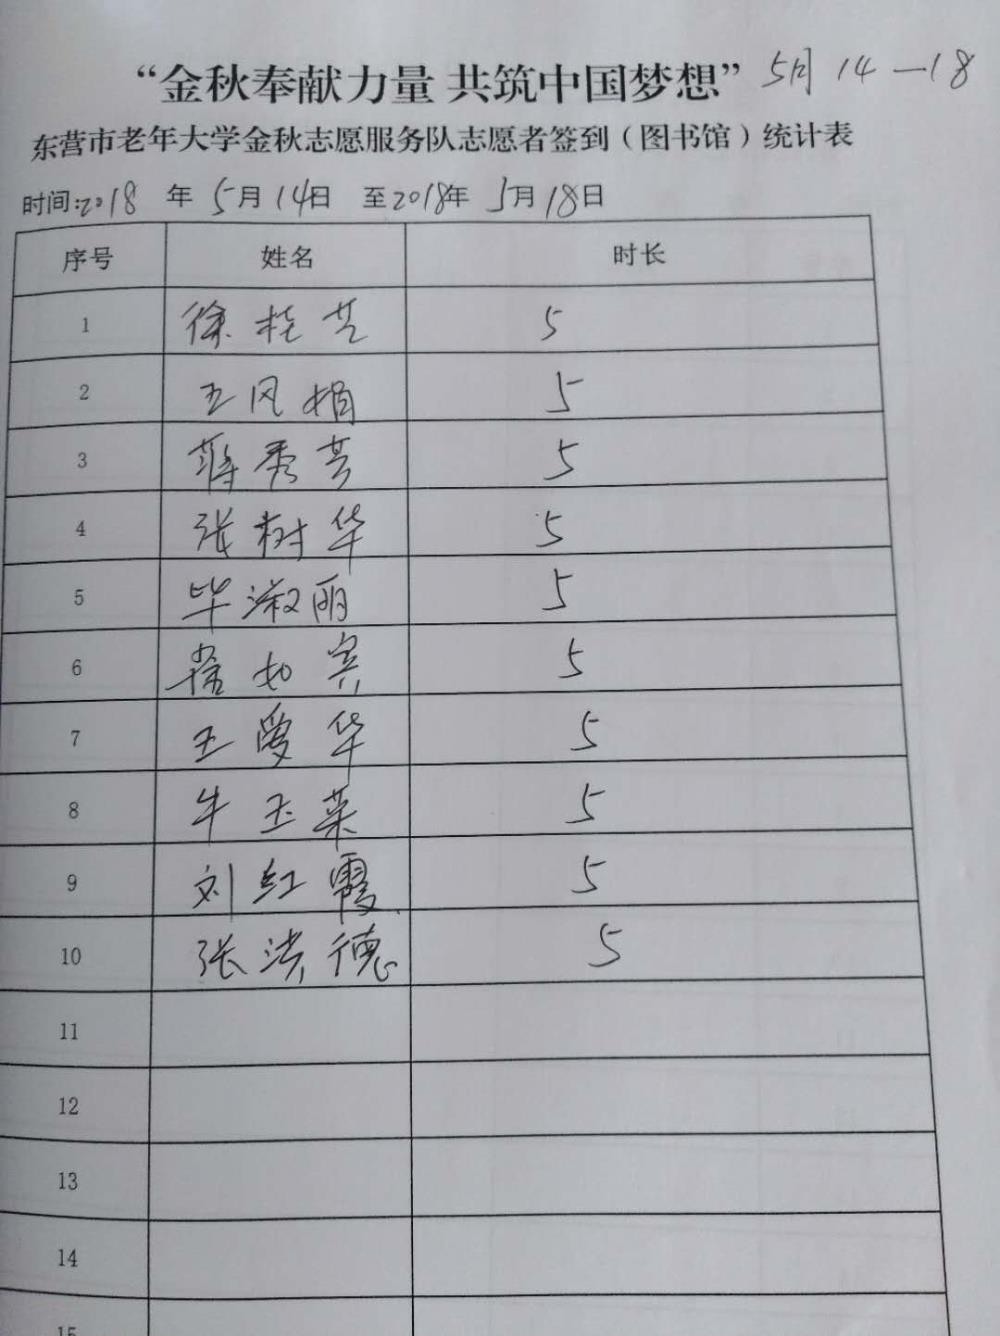 “金秋奉献力量 共筑中国梦想” 5月14—18
东营市老年大学金秋志愿服务队志愿者签到（图书馆）统计表
时间:2018 年 5月14日 至2018年 5月18日
序号 姓名 时长
1 徐桂芝 5
2 王风娟 5
3 蒋秀芳 5
4 张树华 5
5 毕淑丽 5
6 常如宾 5
7 王爱华 5
8 牛玉菜 5
9 刘红霞 5
10 张洪德 5
11
12
13
14
15